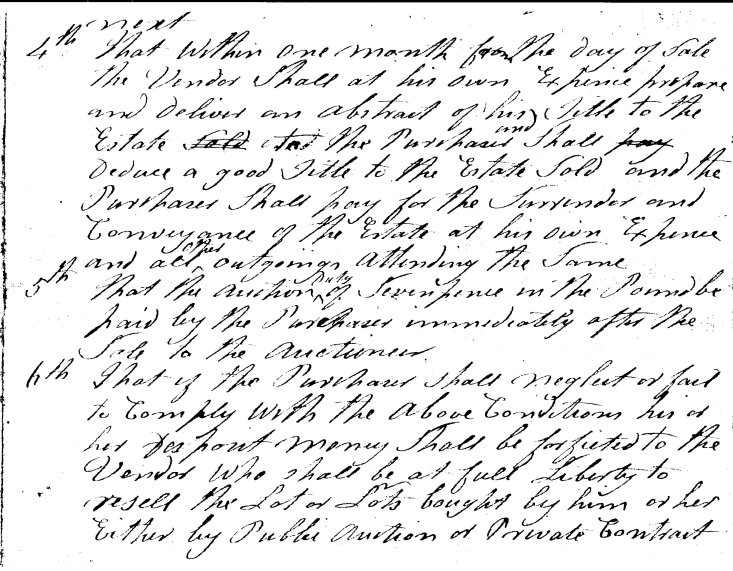 next
4th That Within one month from the day of Sale
the Vendor Shall at his own Expence prepare
and Deliver an Abstract of his Title to the
Estate Sold to the Purchaser and Shall pay
Deduce a good Title to the Estate Sold and the
Purchaser Shall pay for the Surrender and
Conveyance of the Estate at his own Expence
and all other outgoings Attending the Same
5th That the Auction Duty of Sevenpence in the Pound be
paid by the Purchaser immediately after the
Sale to the Auctioneer.
6th That if the Purchaser shall neglect or fail
to Comply With the Above Conditions his or
her Deposit money Shall be forfieted to the
Vendor Who shall be at full Liberty to
resell the Lot or Lots bought by him or her
Either by Public Auction or Private Contract